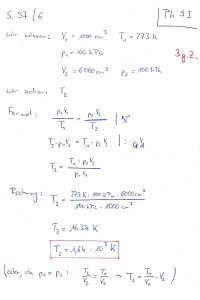 S. 57/6
Ph 9I
wir wissen: V₁ = 1000 cm³ T₁ = 273 K
p₁ = 100 kPa
3 g.Z.
V₂ = 6000 cm³ p₂ = 100 kPa
wir suchen: T₂
Formel: p₁V₁/T₁ = p₂V₂/T₂
T₂·p₁V₁ = T₁·p₂V₂ | : p₁V₁
T₂ = T₁·p₂V₂/p₁V₁
Rechnung: T₂ = 273 K · 100 kPa · 6000 cm³/100 kPa · 1000 cm³
T₂ = 1638 K
T₂ = 1,64 · 10³ K
(oder, da p₁ = p₂ : V₂/T₂ = V₁/T₁ → T₂ = T₁/V₁ · V₂)